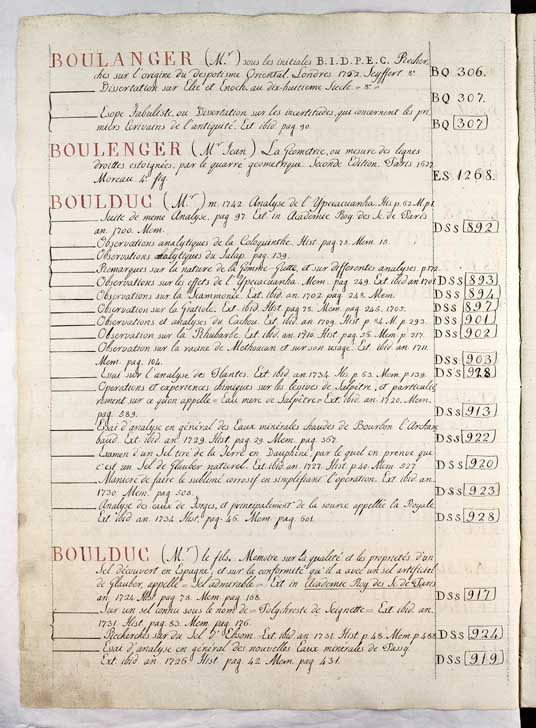 BOULANGER (Mr) sous les initiales B.I.D.P.E.C. Recher
ches sur l'origine du despotisme Oriental. Londres 1762. Seyffert 8°. BQ 306.
Dissertation sur Elie et Enoch. au dix-huitieme Siecle = 8° =
BQ 307.
Esope Fabuliste, ou Dissertation sur les incertitudes, qui concernent les pre
miers Ecrivains de l'antiquité. Ext. ibid pag. 90. BQ 307
BOULENGER (Mr Jean) La Geometrie, ou mesure des lignes
droittes esloignées, par le quarre geometrique. Seconde Edition. Paris 1627.
Moreau. 4° fig. ES 1268.
BOULDUC (Mr) m. 1742. Analyse de l'Ypecacuanha. His. p. 62. M. p. 1.
Suite de meme Analyse. pag. 97. Ext. in Academie Roy. des Sc. de Paris
an. 1700. Mem. DSS 892
Observations analytiques de la Coloquinthe. Hist. pag. 75. Mem. 18.
Observations analytiques du Jalap. pag. 139.
Remarques sur la nature de la Gomme-Gutte, et sur differentes analyses. p.
Observations sur les effets de l'Ypecacuanha. Mem. pag. 249. Ext. ibid an. 1701. DSS 893
Observations sur la Scammonée. Ext. ibid. an. 1702. pag. 248. Mem. DSS 894
Observation sur la Gratiole. Ext. ibid Hist. pag. 75. Mem. pag. 246. 1705. DSS 897
Observations et analyses du Cachou. Ext. ibid an. 1709. Hist. p. 54. M. p. 293. DSS 901
Observation sur la Rhubarbe. Ext. ibid. an. 1710. Hist. pag. 35. Mem. p. 217. DSS 902
Observation sur la racine de Methoacan et sur son usage. Ext. ibid. an. 1711.
Mem. pag. 104. DSS 903
Essai sur l'analyse des Plantes. Ext. ibid an. 1734. His. p. 53. Mem. p. 139. DSS 928
Operations et experiences chimiques sur les lesives de Salpêtre, et particulié
rement sur ce qu'on appelle = Eau mere de Salpêtre = Ext. ibid. an. 1720. Mem.
pag. 589. DSS 913
Essai d'analyse en général des Eaux minerales chaudes de Bourbon l'Archam
baud. Ext. ibid an. 1729. Hist. pag. 29. Mem. pag. 367. DSS 922
Examen d'un Sel tiré de la Terre en Dauphiné, par le quel on preuve que
c'est un Sel de Glauber naturel. Ext. ibid an. 1727. Hist. p. 40. Mem. 527. DSS 920
Maniere de faire le sublimé corrosif en simplifiant l'operation. Ext. ibid an.
1730. Mem. pag. 508. DSS 923
Analyse des eaux de Forges, et principalement de la source appellée la Royale.
Ext. ibid an. 1734. Hist. pag. 46. Mem. pag. 601. DSS 928
BOULDUC (Mr) le fils. Memoire sur la qualité et les proprietés d'un
Sel decouvert en Espagne, et sur la conformité qu'il a avec un sel artificiel
de Glauber, appellé = Sel admirable = Ext. in Academie Roy. des Sc. de Paris
an. 1724. Hist. pag. 78. Mem. pag. 168. DSS 917
Sur un sel connu sous le nom de = Polychreste de Seignette = Ext. ibid an.
1731. Hist. pag. 83. Mem. pag. 176.
Recherches sur du Sel d'Ebsom. Ext. ibid an. 1731. Hist. p. 48. Mem. p. 488. DSS 924
Essai d'analyse en général des nouvelles Eaux minerales de Passy.
Ext. ibid an. 1726. Hist. pag. 42. Mem. pag. 431. DSS 919